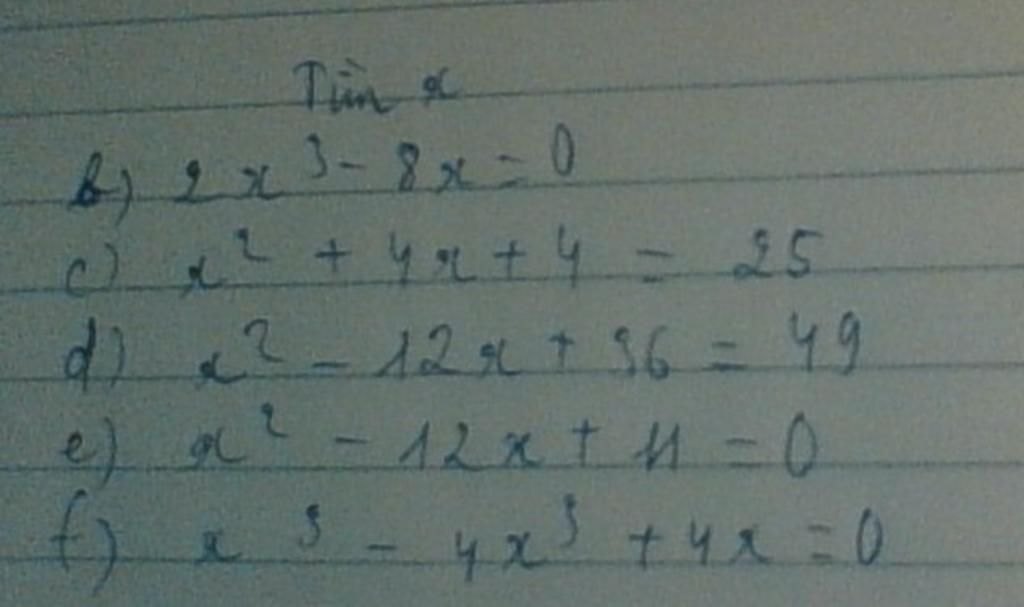 Tìm x
b) 2x³ - 8x = 0
c) x² + 4x + 4 = 25
d) x² - 12x + 36 = 49
e) x² - 12x + 11 = 0
f) x³ - 4x³ + 4x = 0